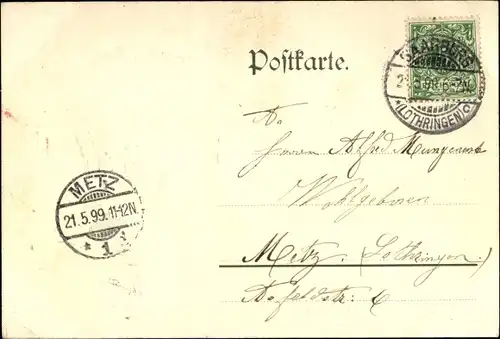 Postkarte.
SAARBURG
(LOTHRINGEN)
An
Herrn Alfred
Wohlgeboren
METZ
21.5.99.11-12N.
* 1
Metz. (Lothringen)